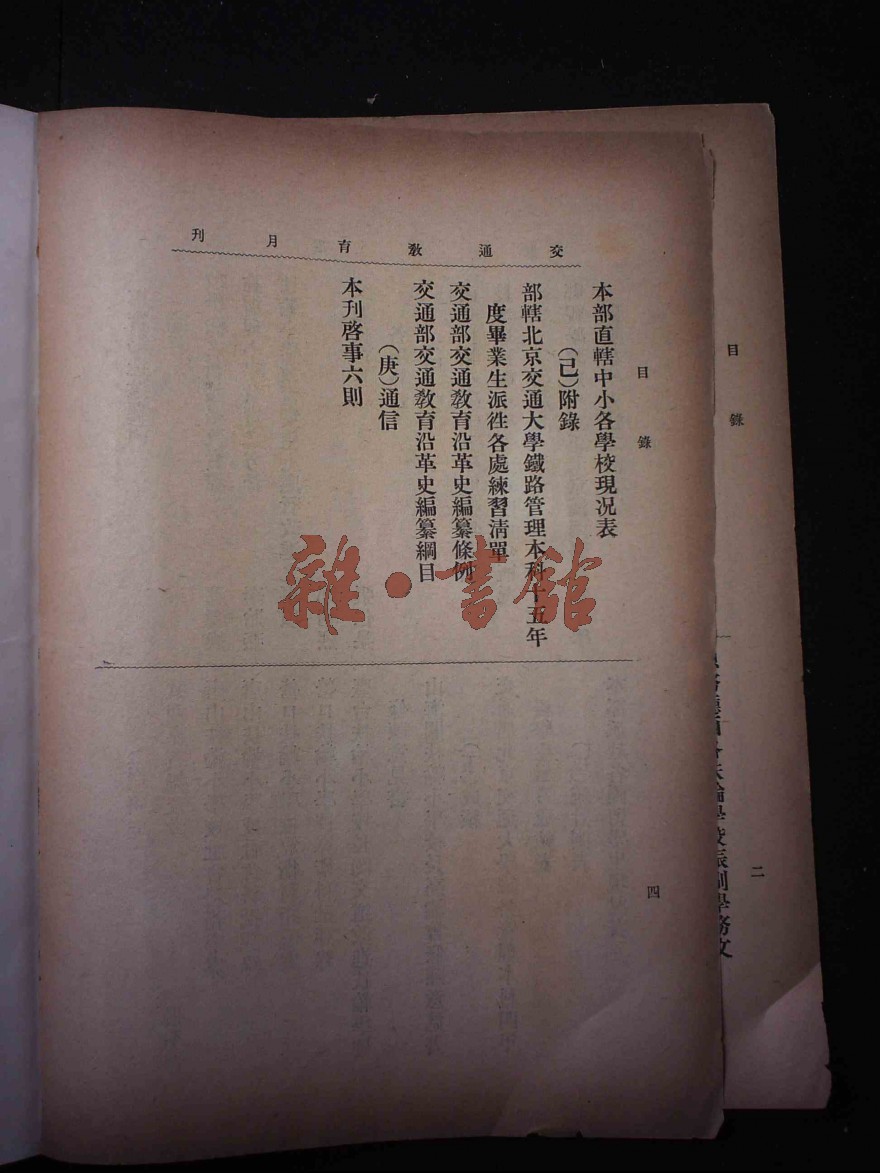 交通教育月刊
目錄
本部直轄中小各學校現況表
(己)附錄
部轄北京交通大學鐵路管理本科十五年
度畢業生派徃各處練習清單
交通部交通教育沿革史編纂條例
交通部交通教育沿革史編纂綱目
(庚)通信
本刊啓事六則
四
目錄
二
雜·書館